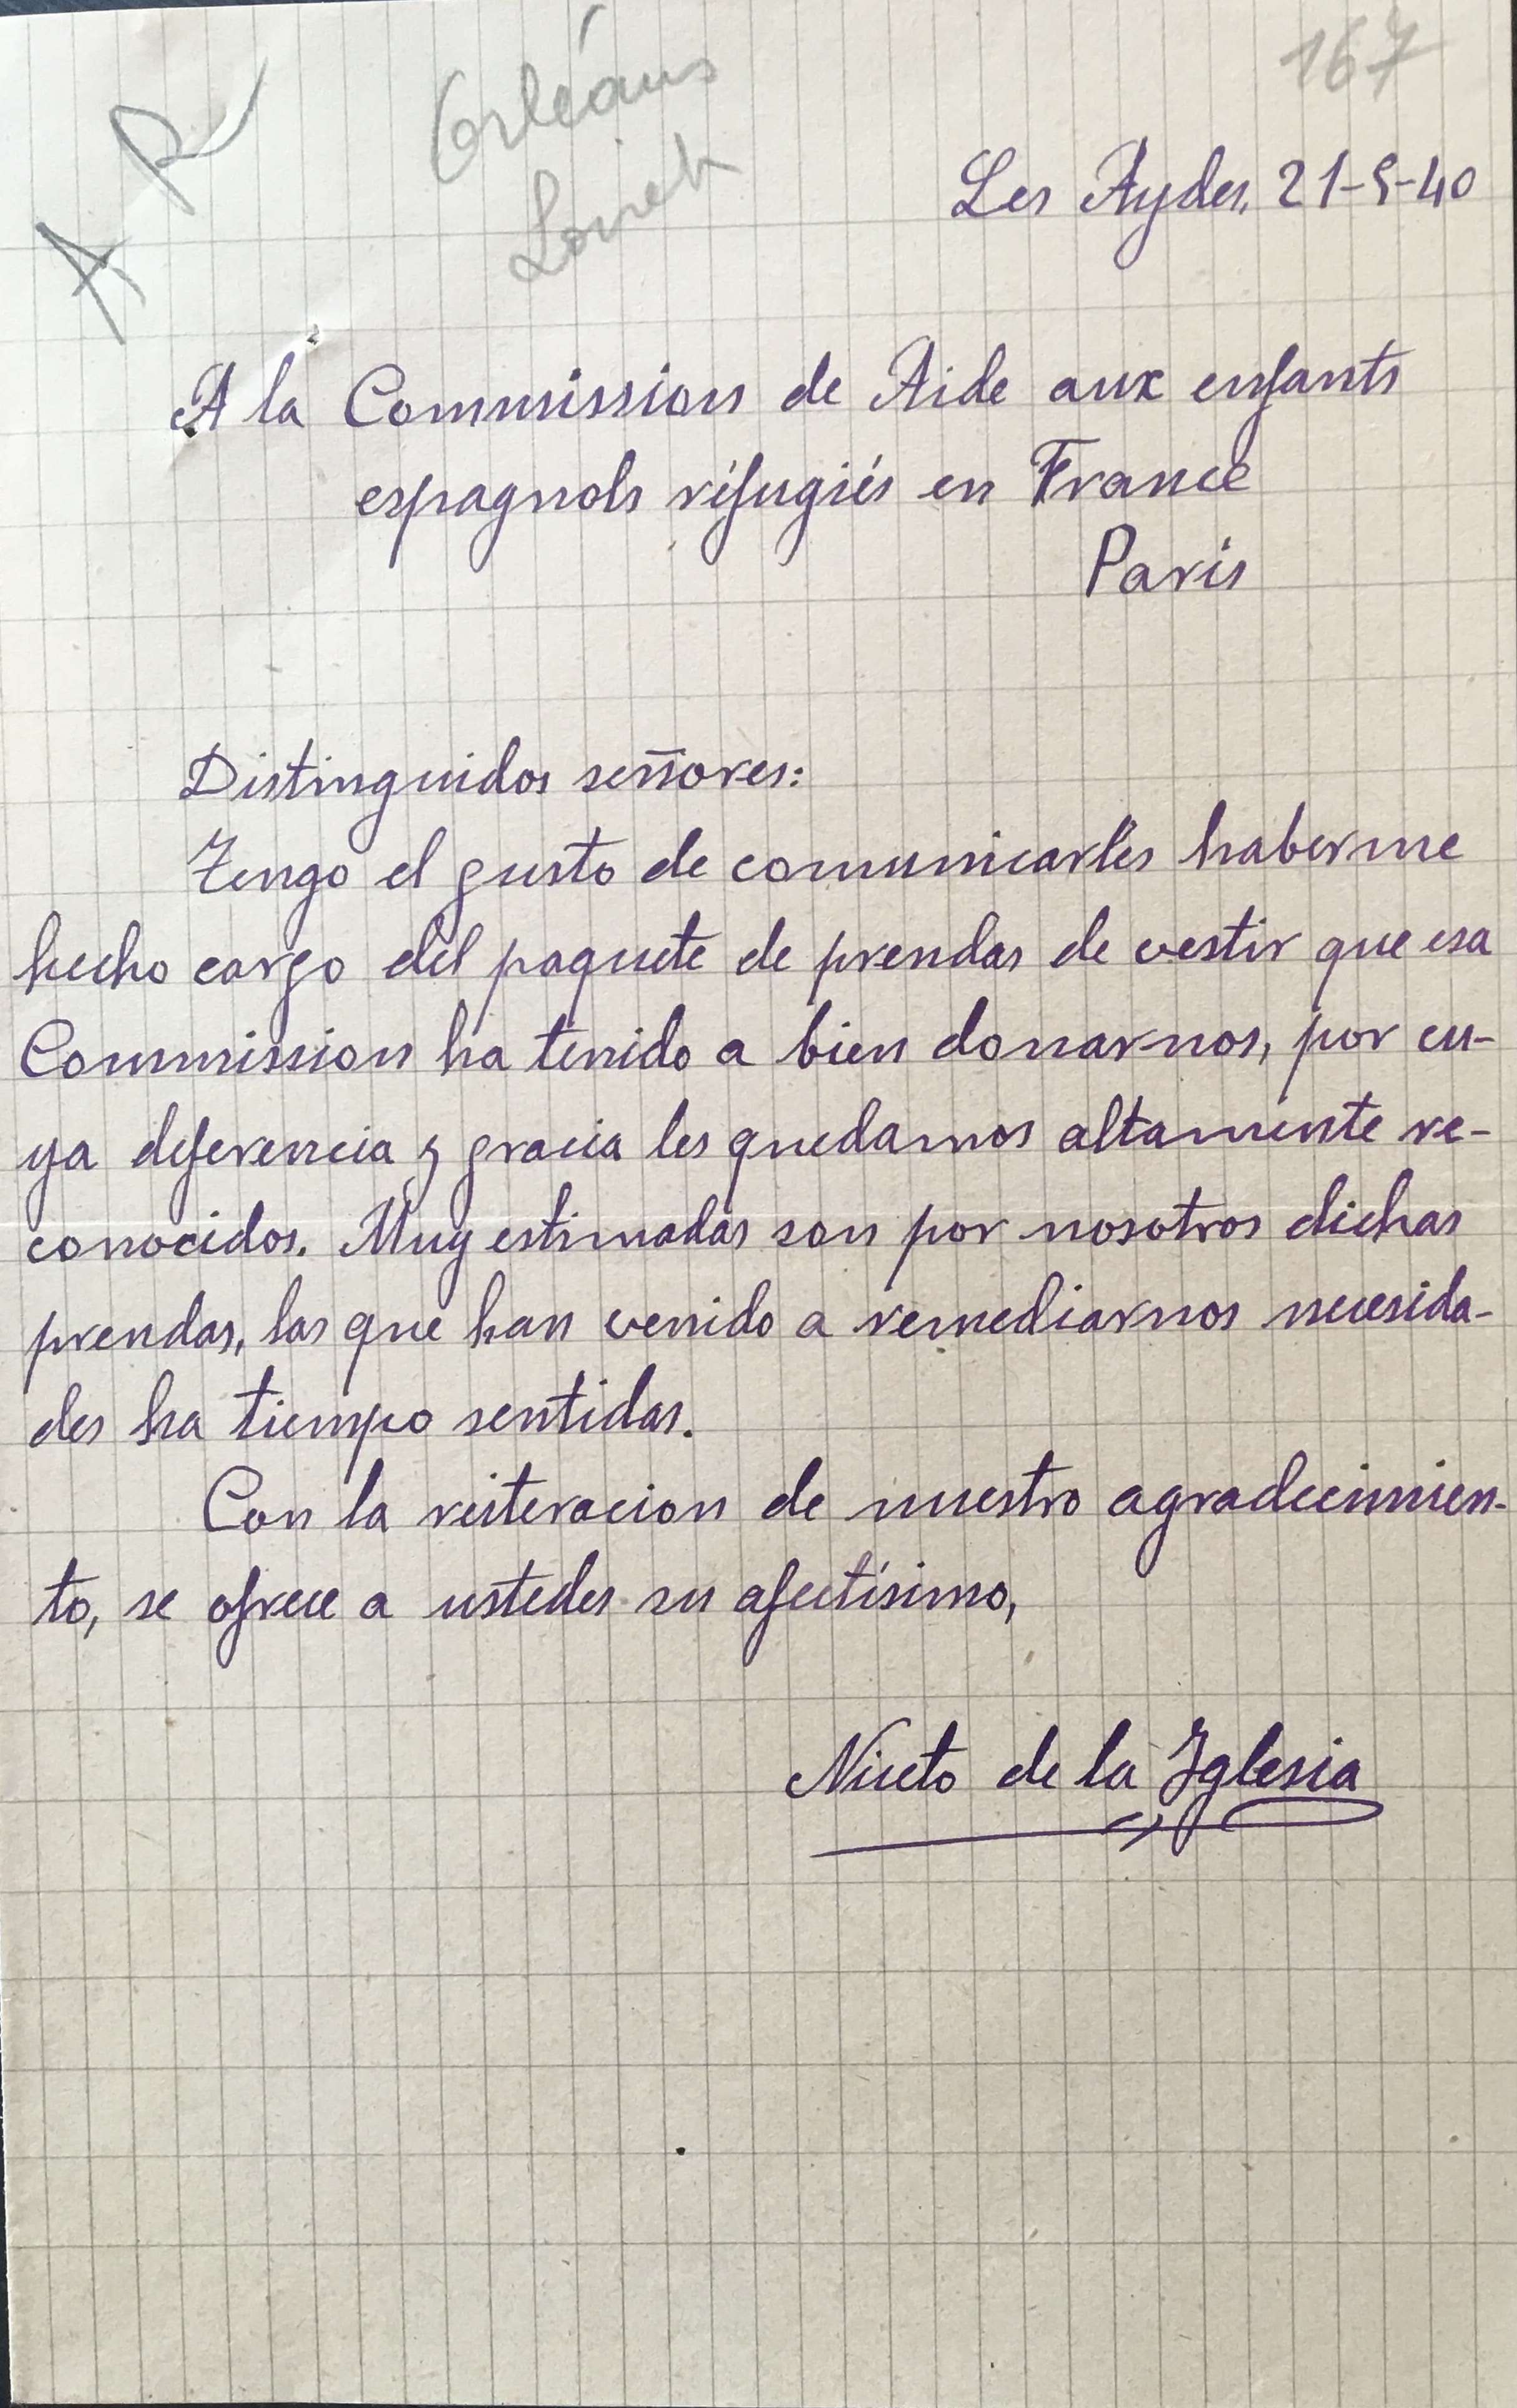 167
Orléans
Loiret
A R
Les Aydes, 21-5-40
A la Commission de Aide aux enfants
espagnols réfugiés en France
Paris
Distinguidos señores:
Tengo el gusto de comunicarles haberme
hecho cargo del paquete de prendas de vestir que esa
Commission ha tenido a bien donarnos, por cu-
ya deferencia y gracia les quedamos altamente re-
conocidos. Muy estimadas son por nosotros dichas
prendas, las que han venido a remediarnos necesida-
des ha tiempo sentidas.
Con la reiteracion de nuestro agradecimien-
to, se ofrece a ustedes su afectísimo,
Niceto de la Iglesia